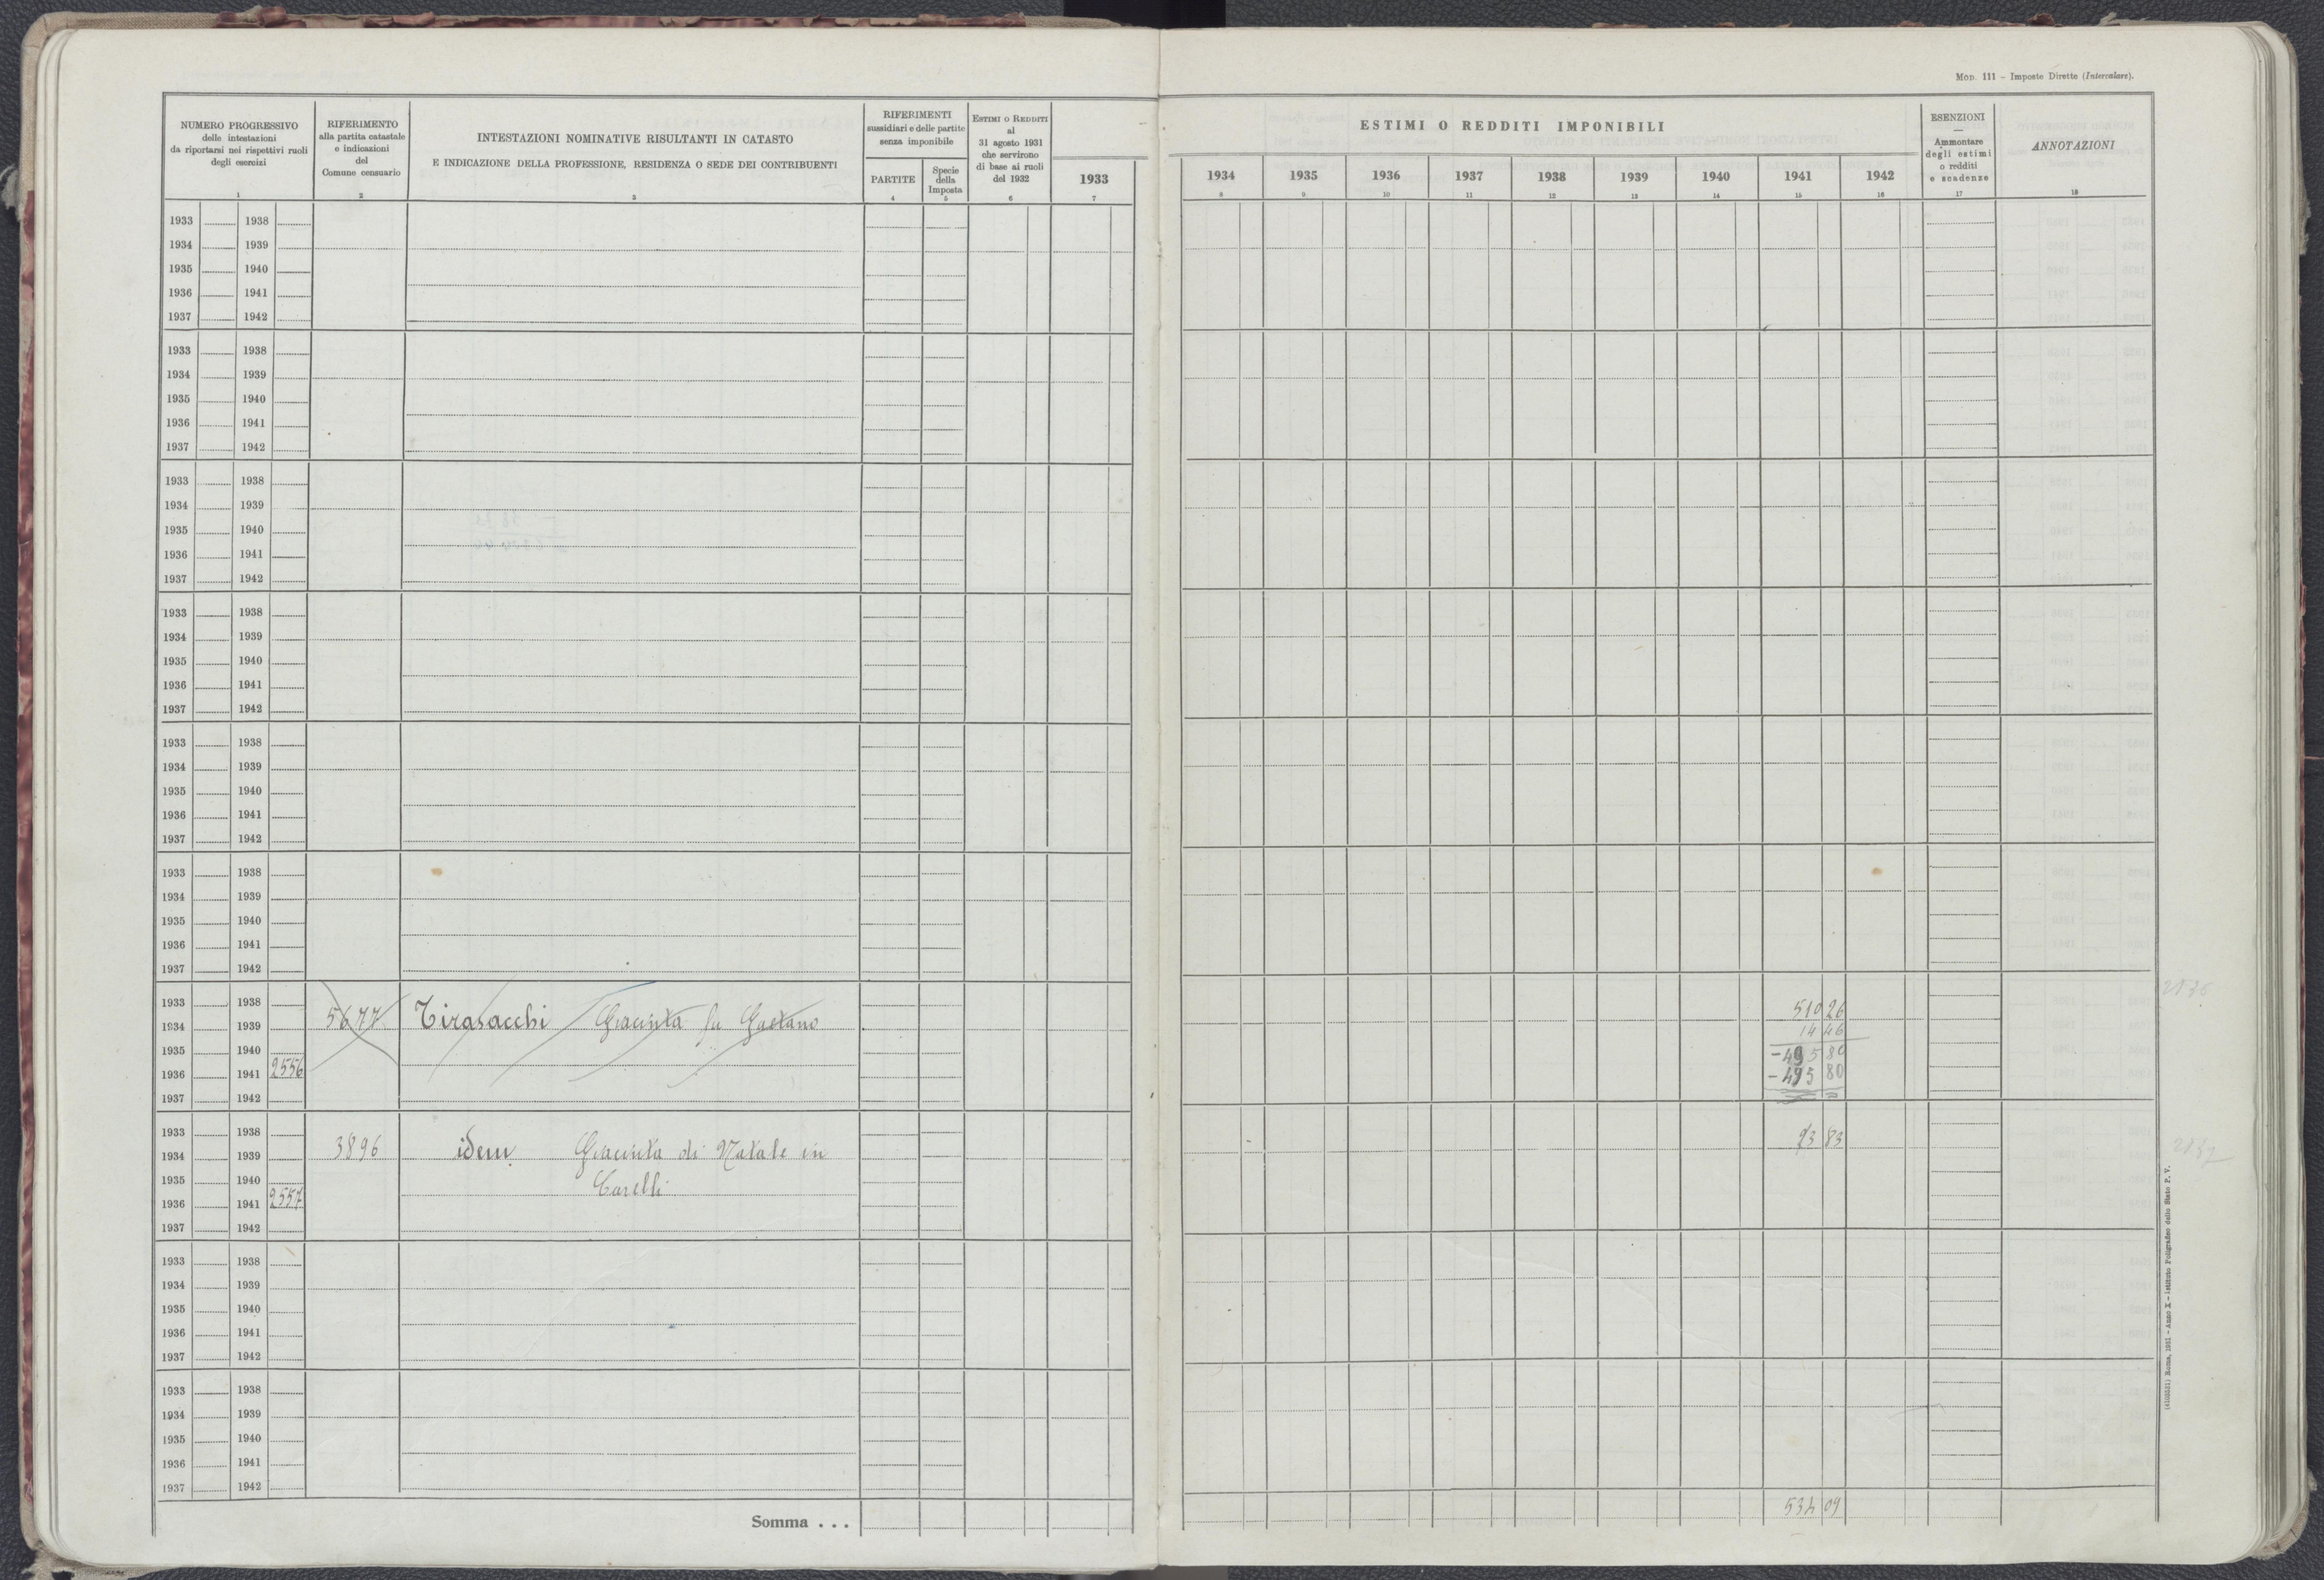 MOD. 111 – Imposte Dirette (Intercalare).
NUMERO PROGRESSIVO
delle intestazioni
da riportarsi nei rispettivi ruoli
degli esercizi
1
RIFERIMENTO
alla partita catastale
e indicazioni
del
Comune censuario
2
INTESTAZIONI NOMINATIVE RISULTANTI IN CATASTO
E INDICAZIONE DELLA PROFESSIONE, RESIDENZA O SEDE DEI CONTRIBUENTI
3
RIFERIMENTI
sussidiari e delle partite
senza imponibile
PARTITE
4
Specie
della
Imposta
5
ESTIMI O REDDITI
al
31 agosto 1931
che servirono
di base ai ruoli
del 1932
6
1933
7
ESTIMI O REDDITI IMPONIBILI
1934 1935 1936 1937 1938 1939 1940 1941 1942
8 9 10 11 12 13 14 15 16
ESENZIONI
—
Ammontare
degli estimi
o redditi
e scadenze
17
ANNOTAZIONI
18
1933 1938
1934 1939
1935 1940
1936 1941
1937 1942
1933 1938
1934 1939
1935 1940
1936 1941
1937 1942
1933 1938
1934 1939
1935 1940
1936 1941
1937 1942
1933 1938
1934 1939
1935 1940
1936 1941
1937 1942
1933 1938
1934 1939
1935 1940
1936 1941
1937 1942
1933 1938
1934 1939
1935 1940
1936 1941
1937 1942
1933 1938 510 26
1934 1939 5677 Tirasacchi Giacinta fu Gaetano 14 46
1935 1940 – 495 80
1936 1941 2556 – 495 80
1937 1942
1933 1938 23 83
1934 1939 3896 idem Giacinta di Natale in
1935 1940 Carelli
1936 1941 2557
1937 1942
1933 1938
1934 1939
1935 1940
1936 1941
1937 1942
1933 1938
1934 1939
1935 1940
1936 1941
1937 1942
Somma . . . 534 09
(4102521) Roma, 1931 – Anno X – Istituto Poligrafico dello Stato P. V.